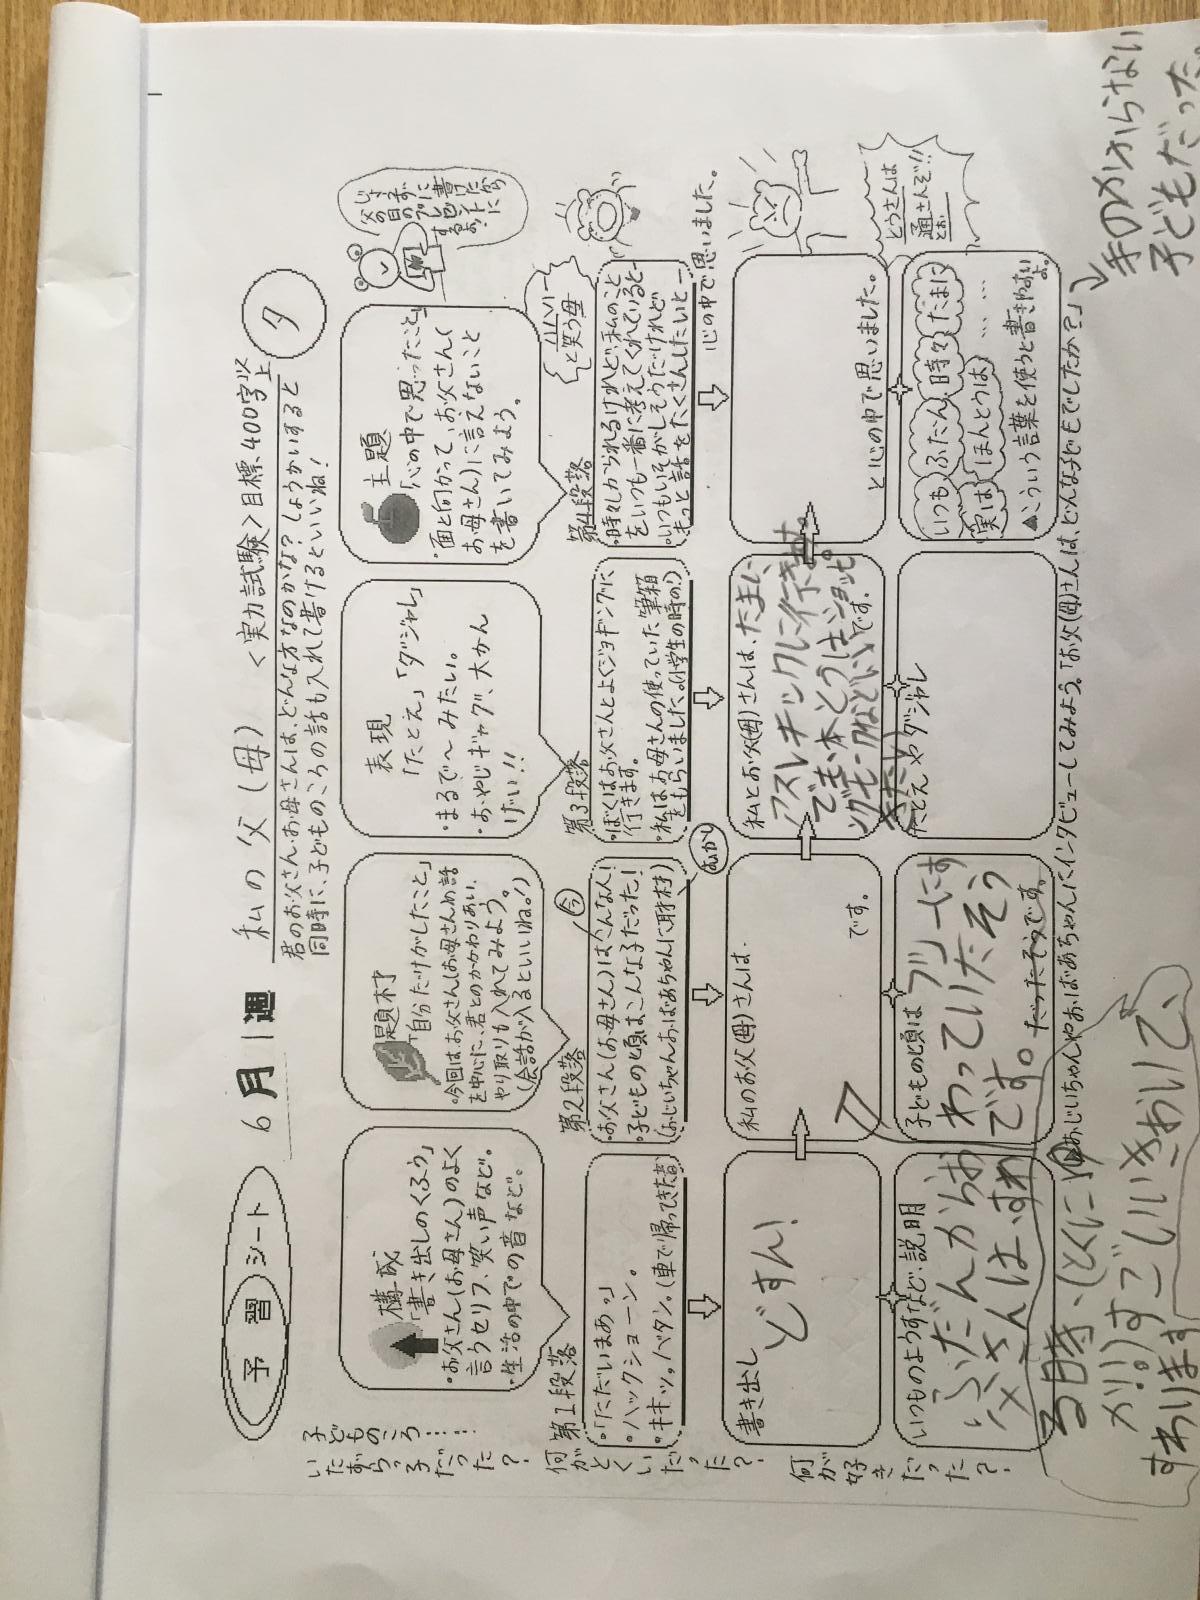 予習シート
6月1週
私の父(母)
<実力試験>目標、400字以上
夕
君のお父さん、お母さんは、どんな方なのかな?しょうかいすると
同時に、子どものころの話も入れて書けるといいね!
構成
「書き出しのくふう」
・お父さん(お母さん)のよく
言うセリフ、笑い声など。
・生活の中での音など。
題材
「自分だけがしたこと」
・今回はお父さん(お母さん)の話
を中心に、君とのかかわりあい、
やり取りも入れてみよう。
(会話が入るといいね!)
表現
「たとえ」「ダジャレ」
・まるで〜みたい。
・おやじギャグ、大かん
げい!!
主題
「心の中で思ったこと」
・面と向かって、お父さん(
お母さん)に言えないこと
を書いてみよう。
第1段落
・「ただいまあっ」
・ハックショーン。
・キキーッ。バタン。(車で帰ってきた音)
第2段落
今
・お父さん(お母さん)はこんな人!
・子どもの頃はこんな子だった!
(おじいちゃんおばあちゃんに取材)
むかし
第3段落
・ぼくはお父さんとよくジョギングに
行きます。
・私はお母さんの使っていた筆箱
をもらいました。(小学生の時の!)
第4段落
ハハハ…
と笑う母
・時々しかられるけれど、私のこと
をいつも一番に考えてくれていると―
・いつもいそがしそうだけれど
もっと話をたくさんしたいと―
心の中で思いました。
書き出し
どすん!
私のお父(母)さんは、
です。
私とお父(母)さんは、たまに、
アスレチックに行きます。
でも、本とうはショッピ
ングモールなどに
です。
と心の中で思いました。
いつものようすなど、説明
ふだんからお
父さんは、すわ
る時、(とくに
すごいいきおいで、
すわります
子どもの頃は
フツーにす
わっていたそう
です。
だったそうです。
たとえやダジャレ
いつも ふだん 時々 たまに
実は ほんとうは ……
▲こういう言葉を使うと書きやすいよ。
とうさんは
通さんぞ!!
とお
おじいちゃんやおばあちゃんにインタビューしてみよう。「お父(母)さんは、どんな子どもでしたか?」
手のかからない
子どもだった。
子どものころ……
いたずらっ子だった?
何がとくいだった?
何が好きだった?